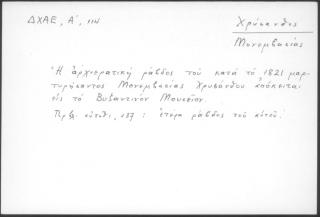 ΔΧΑΕ, Α΄, 114
Χρύσανθος
Μονεμβασίας
Ἡ ἀρχιερατική ράβδος τοῦ κατά τό 1821 μαρ-
τυρήσαντος Μονεμβασίας Χρυσάνθου ἀπόκειται
εἰς τό Βυζαντινόν Μουσεῖον.
Πρβλ. αὐτόθι, 87 : ἑτέρα ράβδος τοῦ αὐτοῦ.